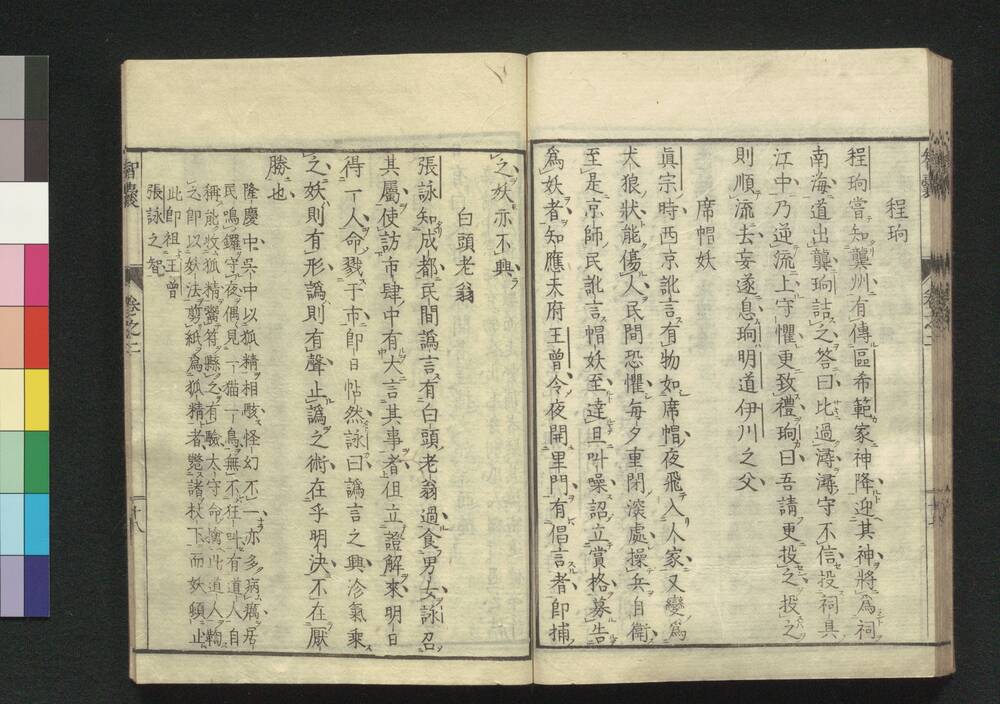 程珦
程珦嘗知龔州有傳區希範家神降迎其神將爲祠
南海道出龔珦詰之答曰比過潯潯守不信投祠具
江中乃逆流上守懼更致禮珦曰吾請更投之投之
則順流去妄遂息珦明道伊川之父
席帽妖
眞宗時西京訛言有物如席帽夜飛入人家又變爲
犬狼狀能傷人民間恐懼每夕重閉深處操兵自衛
至是京師民訛言帽妖至達旦叫噪詔立賞格募告
爲妖者知應天府王曾令夜開里門有倡言者即捕
之妖亦不興
白頭老翁
張詠知成都民間譌言有白頭老翁過食男女詠召
其屬使訪市肆中有大言其事者但立證解來明日
得一人命戮于市即日帖然詠曰譌言之興沴氣乘
之妖則有形譌則有聲止譌之術在乎明決不在厭
勝也
隆慶中吳中以狐精相駭怪幻不一亦多病癘居
民鳴鑼守夜偶見一猫一鳥無不狂叫有道人自
稱能收狐精鬻符縣之有驗太守命擒此道人鞫
之即以妖法剪紙爲狐精者斃諸杖下而妖頓止
此即祖王曾
張詠之智
智囊
卷之二
十八